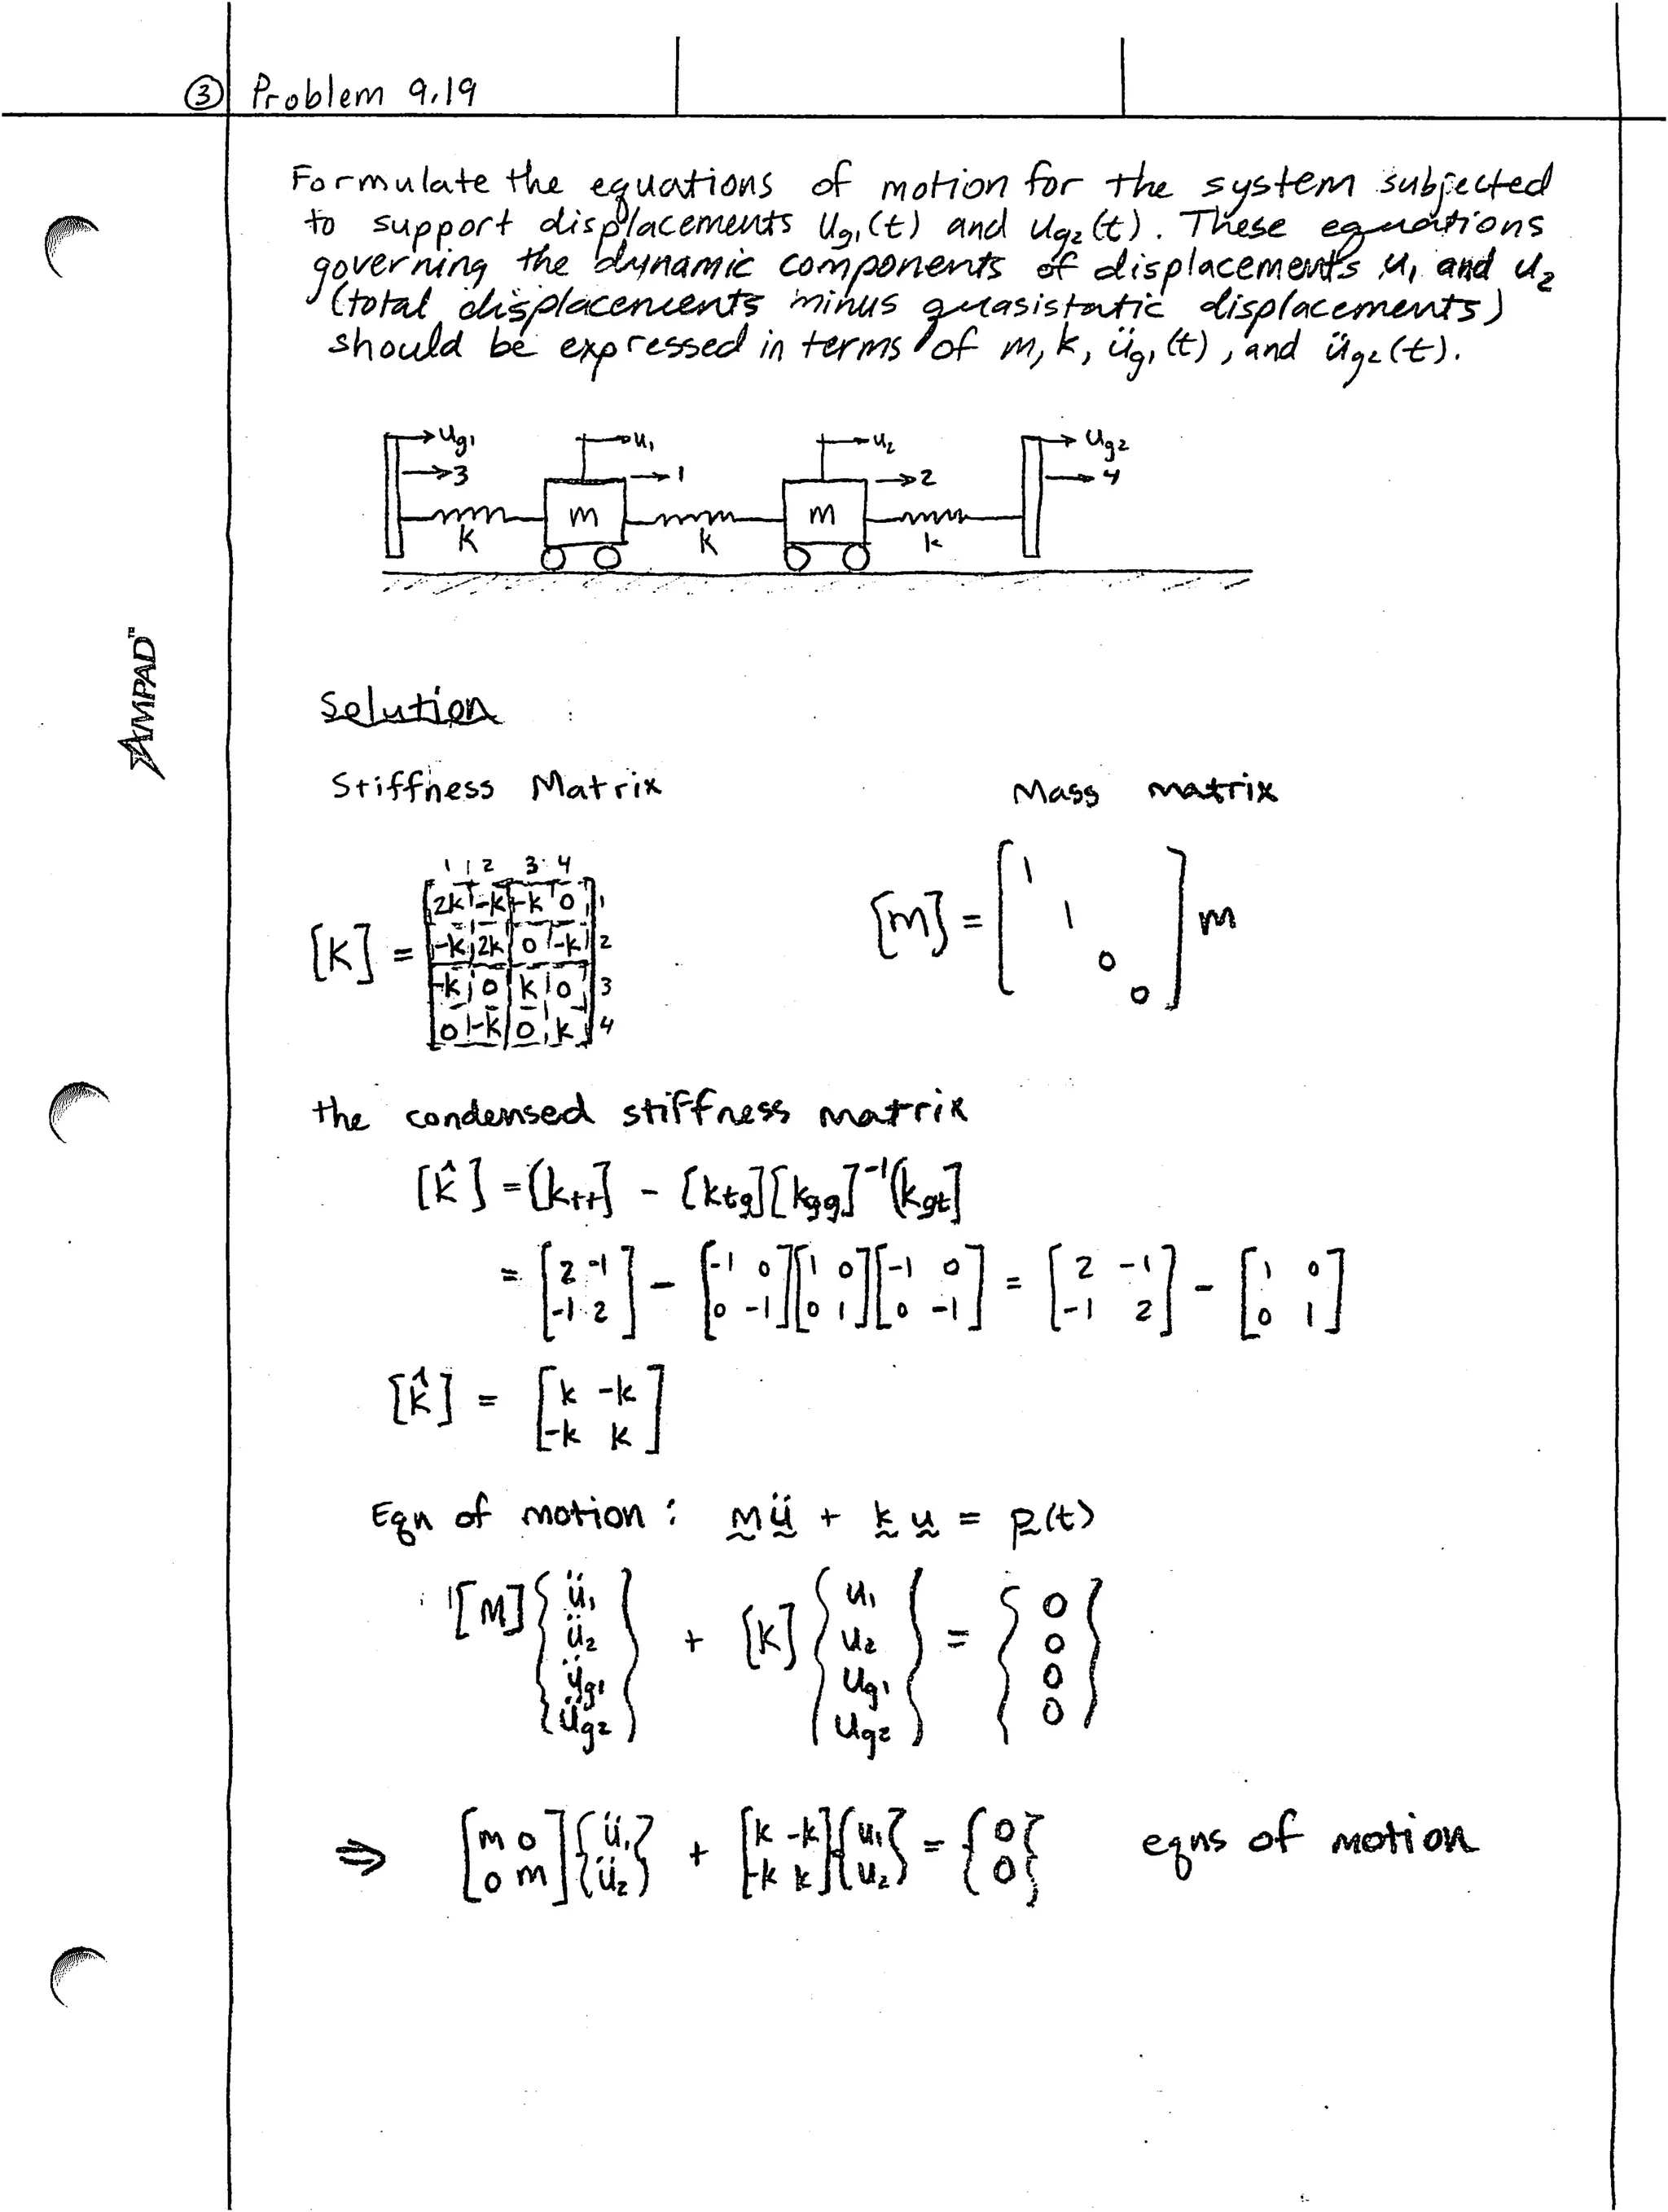 ③ Problem 9.19
Formulate the equations of motion for the system subjected
to support displacements Ug1(t) and Ug2(t). These equations
governing the dynamic components of displacements u1 and u2
(total displacements minus quasistatic displacements)
should be expressed in terms of m, k, üg1(t), and üg2(t).
Ug1 u1 u2 Ug2
3 1 2 4
m m
k k k
AMPAD™
Solution
Stiffness Matrix Mass matrix
1 2 3 4
[K] = [2k -k -k 0] 1
[-k 2k 0 -k] 2
[-k 0 k 0] 3
[0 -k 0 k] 4
[m] = [1 1 0 0] m
the condensed stiffness matrix
[k̂] = [ktt] - [ktg][kgg]⁻¹[kgt]
= [2 -1; -1 2] - [-1 0; 0 -1][1 0; 0 1][-1 0; 0 -1] = [2 -1; -1 2] - [1 0; 0 1]
[k̂] = [k -k; -k k]
Eqn of motion: mü + ku = p(t)
[M]{ü1 ü2 üg1 üg2} + [K]{u1 u2 ug1 ug2} = {0 0 0 0}
⇒ [m 0; 0 m]{ü1 ü2} + [k -k; -k k]{u1 u2} = {0 0} eqns of motion